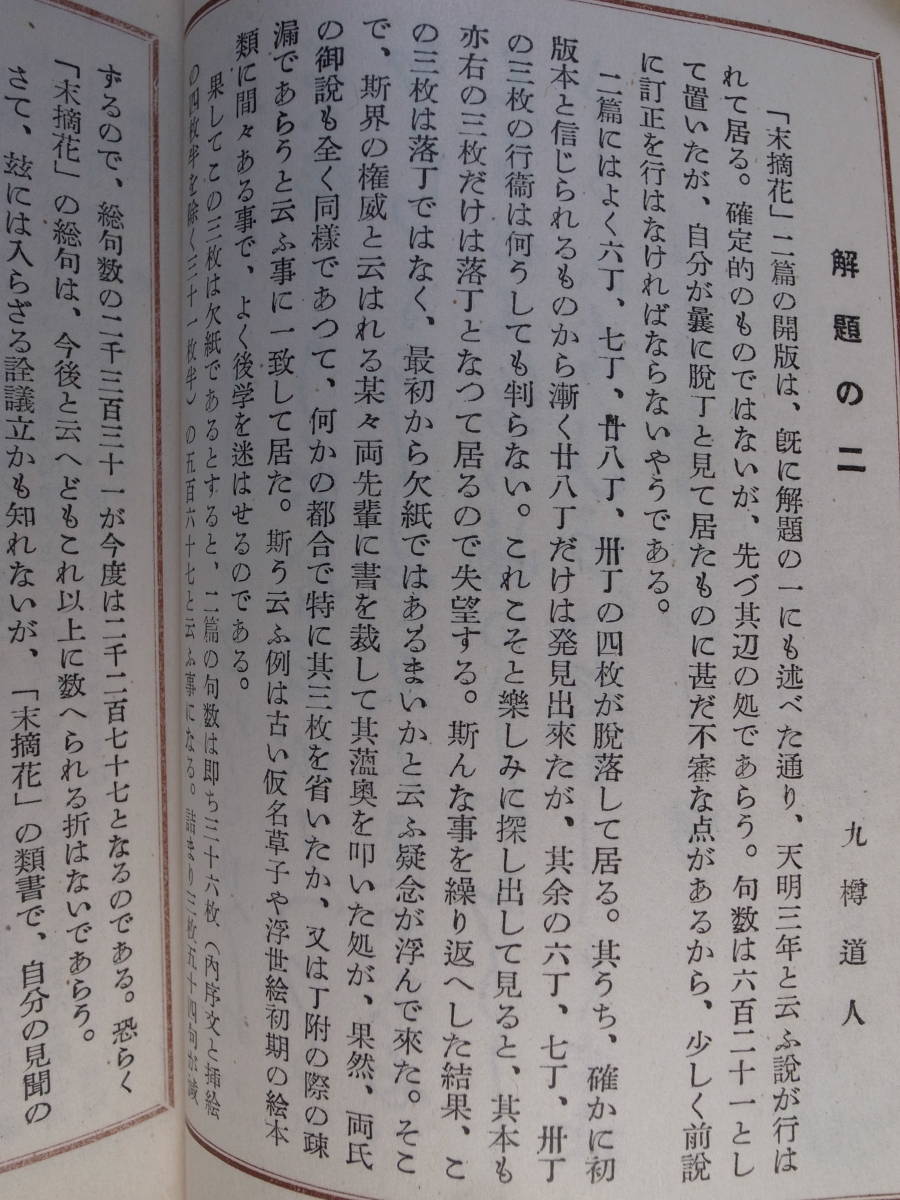 解題の二
九樽道人
「末摘花」二篇の開版は、既に解題の一にも述べた通り、天明三年と云ふ説が行は
れて居る。確定的のものではないが、先づ其辺の処であらう。句数は六百二十一とし
て置いたが、自分が曩に脱丁と見て居たものに甚だ不審な点があるから、少しく前説
に訂正を行はなければならないやうである。
二篇にはよく六丁、七丁、廿八丁、卅丁の四枚が脱落して居る。其うち、確かに初
版本と信じられるものから漸く廿八丁だけは発見出來たが、其余の六丁、七丁、卅丁
の三枚の行衞は何うしても判らない。これこそと樂しみに探し出して見ると、其本も
亦右の三枚だけは落丁となつて居るので失望する。斯んな事を繰り返へした結果、こ
の三枚は落丁ではなく、最初から欠紙ではあるまいかと云ふ疑念が浮んで來た。そこ
で、斯界の権威と云はれる某々両先輩に書を裁して其薀奥を叩いた処が、果然、両氏
の御説も全く同様であつて、何かの都合で特に其三枚を省いたか、又は丁附の際の疎
漏であらうと云ふ事に一致して居た。斯う云ふ例は古い仮名草子や浮世絵初期の絵本
類に間々ある事で、よく後学を迷はせるのである。
果してこの三枚は欠紙であるとすると、二篇の句数は即ち三十六枚（内序文と挿絵
の四枚半を除く三十一枚半）の五百六十七と云ふ事になる。詰まり三枚五十四句が減
ずるので、総句数の二千三百三十一が今度は二千二百七十七となるのである。恐らく
「末摘花」の総句は、今後と云へどもこれ以上に数へられる折はないであらう。
さて、玆には入らざる詮議立かも知れないが、「末摘花」の類書で、自分の見聞の